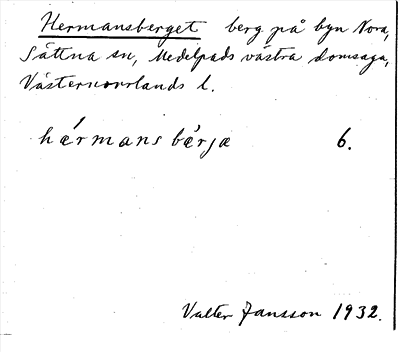 Hermansberget berg på byn Nora,
Sättna sn, Medelpads västra domsaga,
Västernorrlands l.
hǽrmansbæ̀rjæ 6.
Valter Jansson 1932.